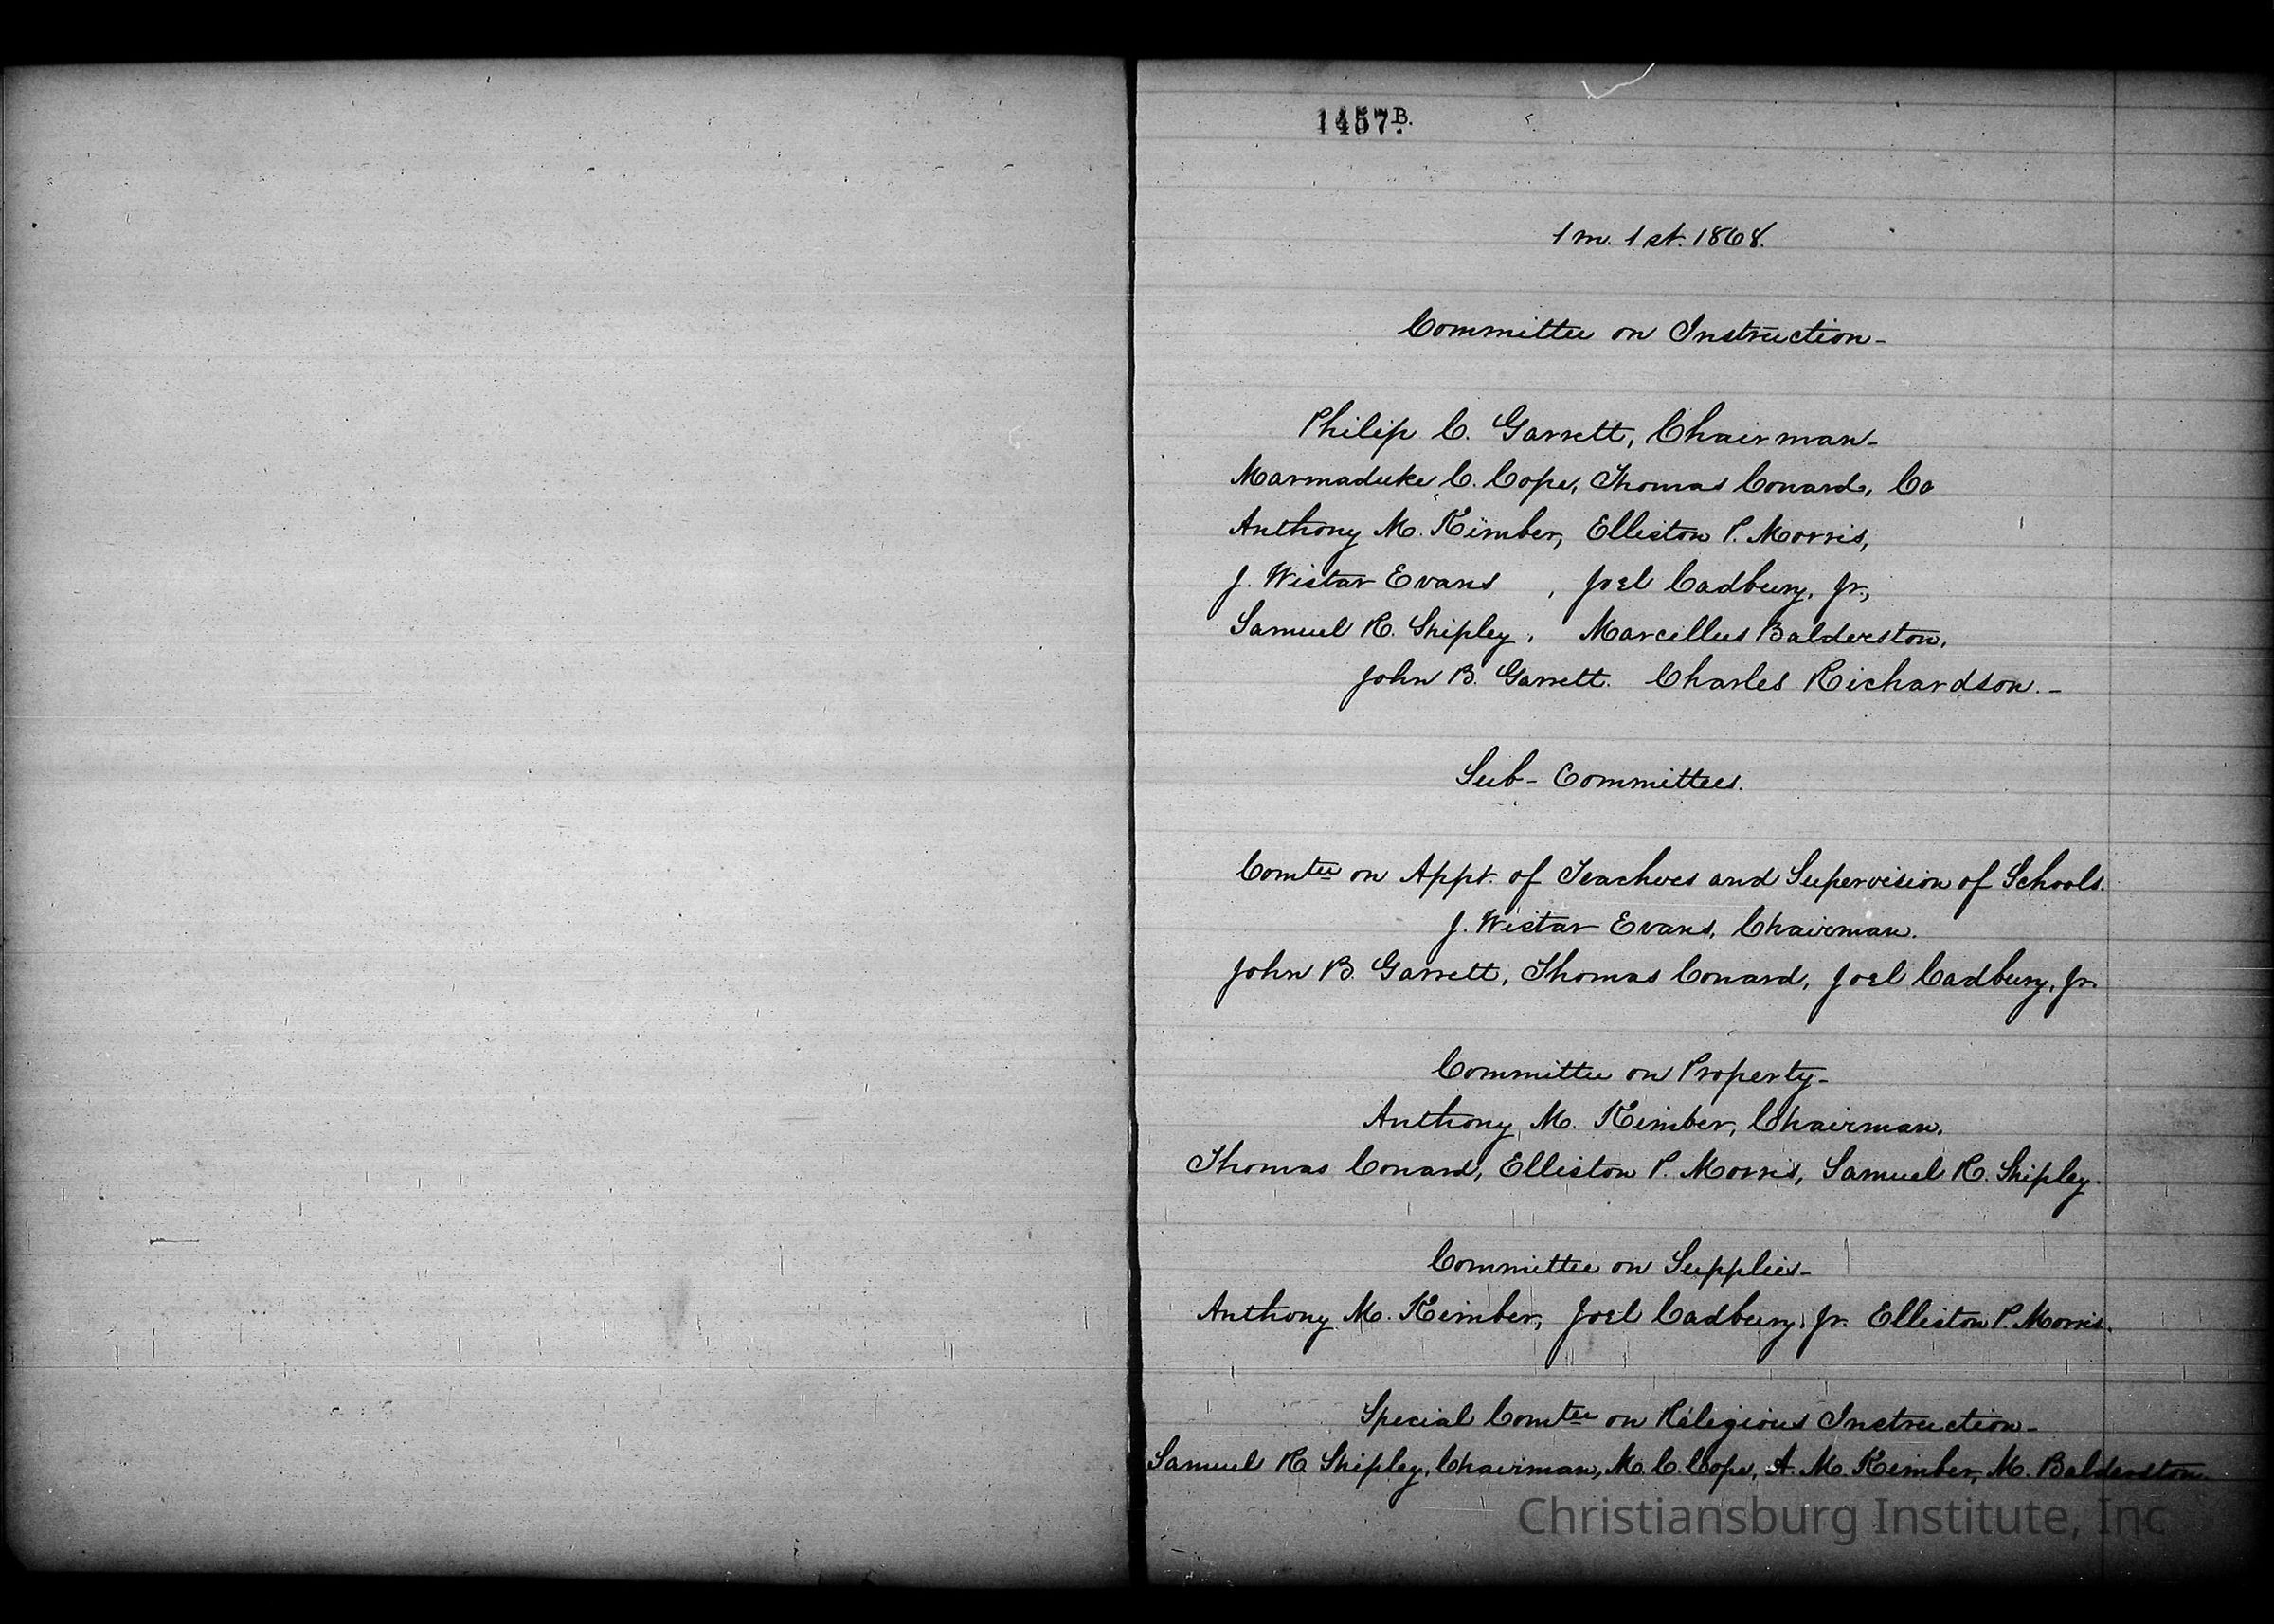 1457.B.
1 m. 1 st. 1868.
Committee on Instruction-
Philip C. Garrett, Chairman-
Marmaduke C. Cope, Thomas Conard, Co
Anthony M. Kimber, Elliston P. Morris,
J. Wistar Evans , Joel Cadbury, Jr.,
Samuel R. Shipley, Marcellus Balderston,
John B. Garrett. Charles Richardson.-
Sub-Committees.
Comtee on Appt. of Teachers and Supervision of Schools.
J. Wistar Evans, Chairman.
John B. Garrett, Thomas Conard, Joel Cadbury, Jr.
Committee on Property-
Anthony M. Kimber, Chairman.
Thomas Conard, Elliston P. Morris, Samuel R. Shipley.
Committee on Supplies-
Anthony M. Kimber, Joel Cadbury, Jr. Elliston P. Morris.
Special Comtee on Religious Instruction-
Samuel R. Shipley, Chairman, M. C. Cope, A. M. Kimber, M. Balderston.
Christiansburg Institute, Inc